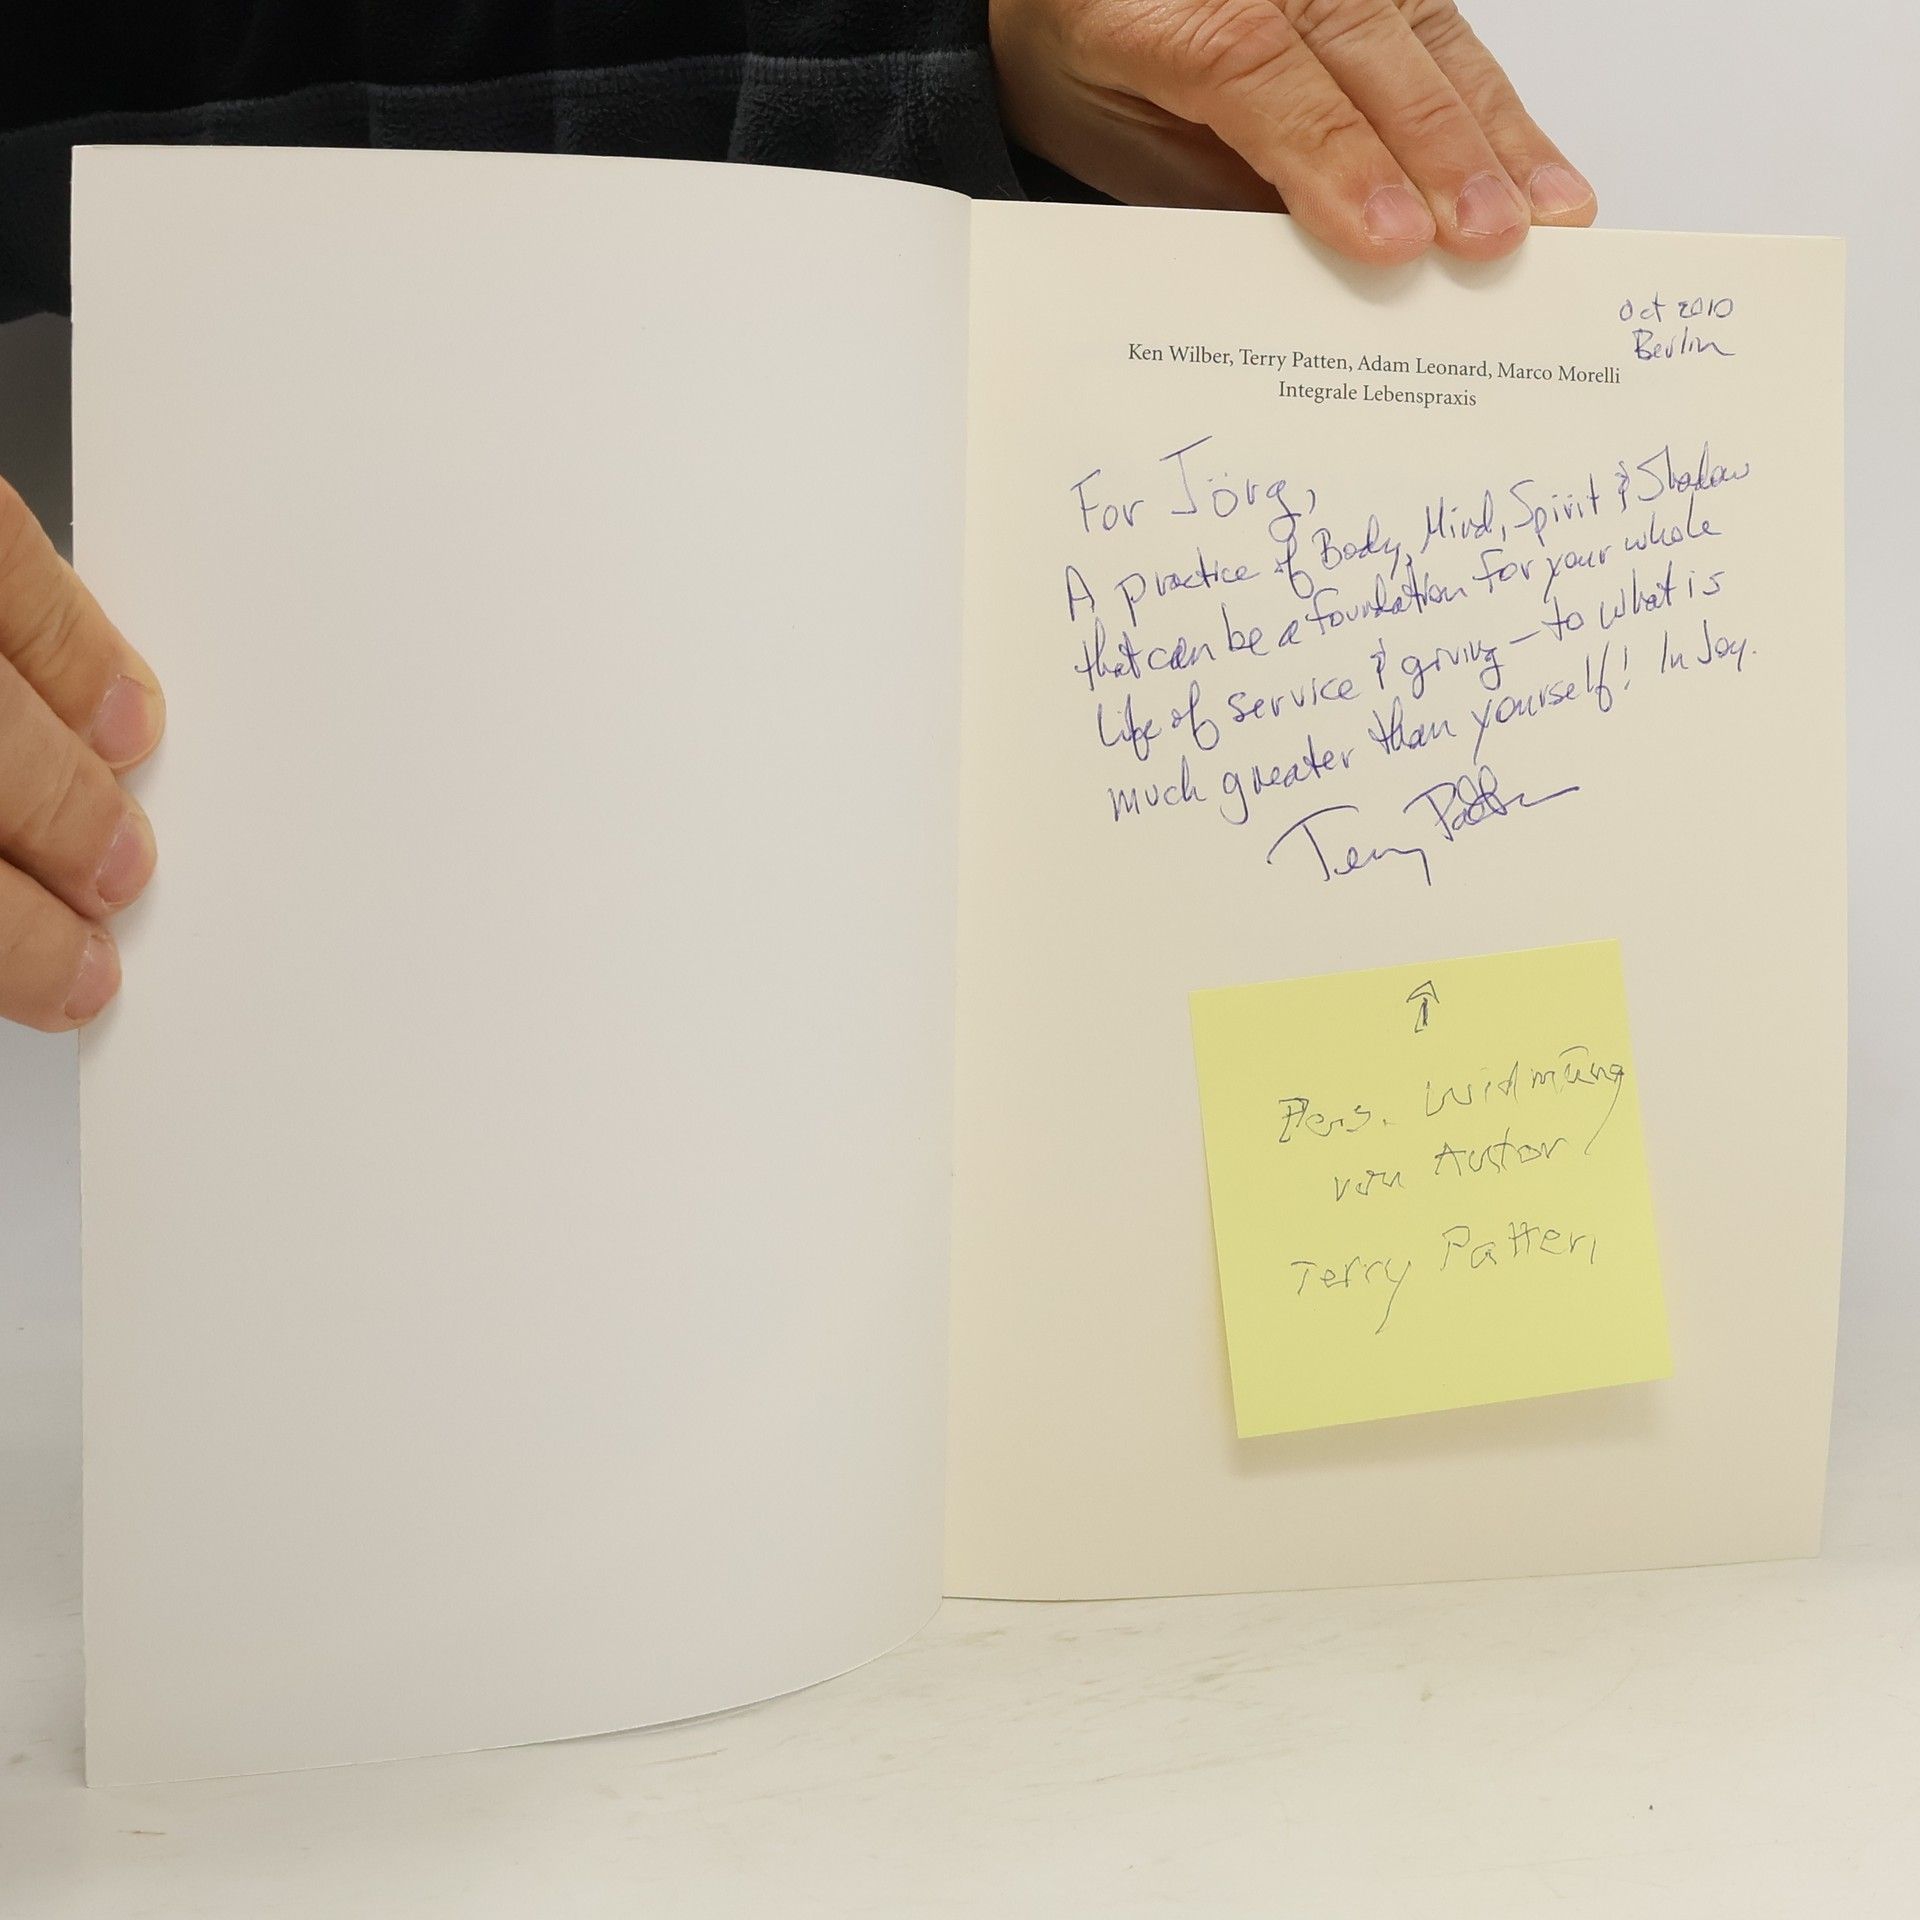 Oct 2010
Berlin
Ken Wilber, Terry Patten, Adam Leonard, Marco Morelli
Integrale Lebenspraxis
For Jörg,
A practice of Body, Mind, Spirit & Shadow
that can be a foundation for your whole
life of service & giving – to what is
much greater than yourself! In Joy.
Terry Patten
↑
Pers. Widmung
von Autor
Terry Patten